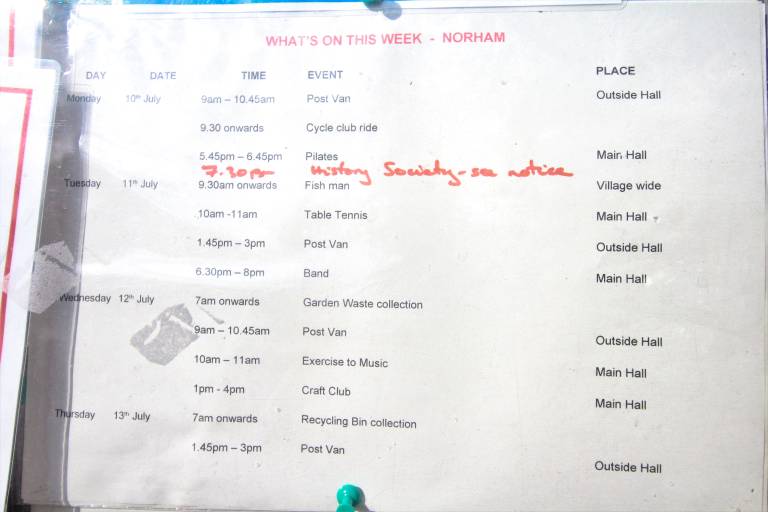 WHAT'S ON THIS WEEK - NORHAM
DAY DATE TIME EVENT PLACE
Monday 10th July 9am – 10.45am Post Van Outside Hall
9.30 onwards Cycle club ride
5.45pm – 6.45pm Pilates Main Hall
7.30pm History Society - see notice
Tuesday 11th July 9.30am onwards Fish man Village wide
10am -11am Table Tennis Main Hall
1.45pm – 3pm Post Van Outside Hall
6.30pm – 8pm Band Main Hall
Wednesday 12th July 7am onwards Garden Waste collection
9am – 10.45am Post Van Outside Hall
10am – 11am Exercise to Music Main Hall
1pm - 4pm Craft Club Main Hall
Thursday 13th July 7am onwards Recycling Bin collection
1.45pm – 3pm Post Van Outside Hall